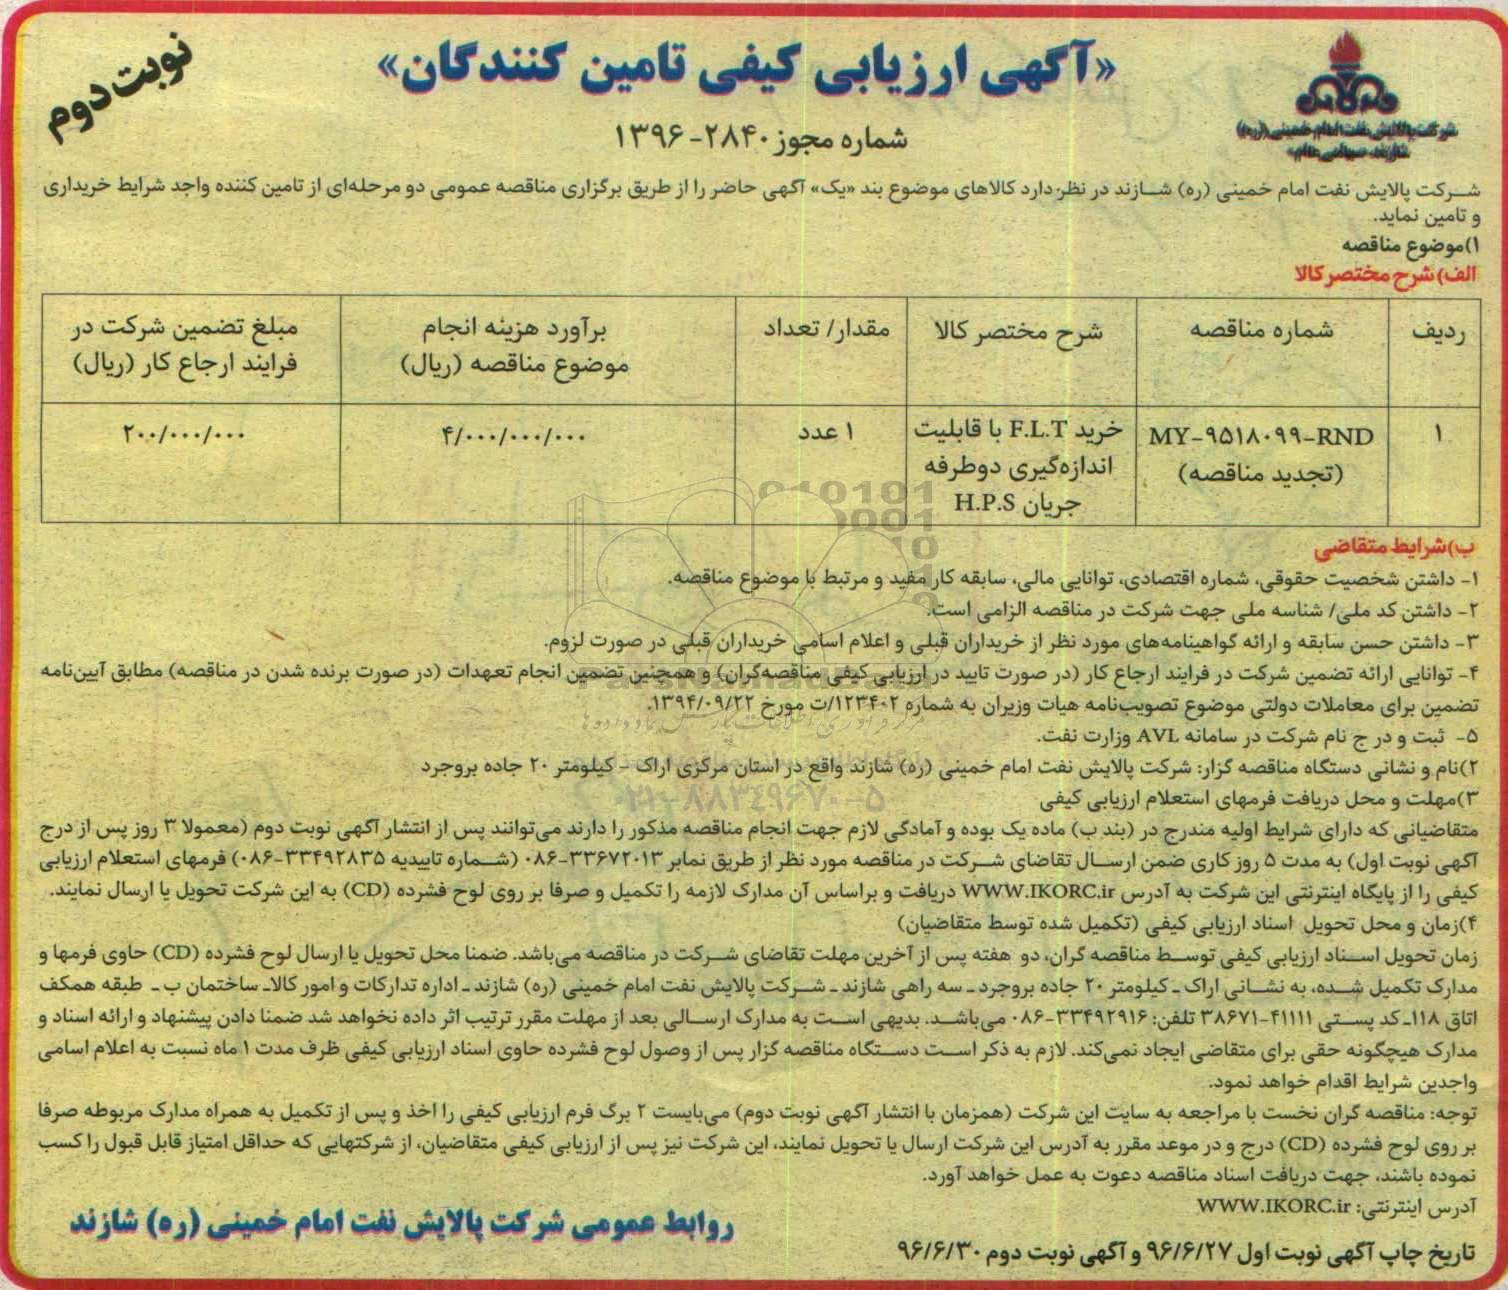 «آگهی ارزیابی کیفی تامین کنندگان»
نوبت دوم
شرکت پالایش نفت امام خمینی (ره)
شازند -سهامی عام-
شماره مجوز ۲۸۴۰-۱۳۹۶
شرکت پالایش نفت امام خمینی (ره) شازند در نظر دارد کالاهای موضوع بند «یک» آگهی حاضر را از طریق برگزاری مناقصه عمومی دو مرحله‌ای از تامین کننده واجد شرایط خریداری
و تامین نماید.
۱)موضوع مناقصه
الف)شرح مختصر کالا
ردیف | شماره مناقصه | شرح مختصر کالا | مقدار/ تعداد | برآورد هزینه انجام موضوع مناقصه (ریال) | مبلغ تضمین شرکت در فرایند ارجاع کار (ریال)
۱ | MY-۹۵۱۸۰۹۹-RND (تجدید مناقصه) | خرید F.L.T با قابلیت اندازه‌گیری دوطرفه جریان H.P.S | ۱ عدد | ۴/۰۰۰/۰۰۰/۰۰۰ | ۲۰۰/۰۰۰/۰۰۰
ب)شرایط متقاضی
۱- داشتن شخصیت حقوقی، شماره اقتصادی، توانایی مالی، سابقه کار مفید و مرتبط با موضوع مناقصه.
۲- داشتن کد ملی/ شناسه ملی جهت شرکت در مناقصه الزامی است.
۳- داشتن حسن سابقه و ارائه گواهینامه‌های مورد نظر از خریداران قبلی و اعلام اسامی خریداران قبلی در صورت لزوم.
۴- توانایی ارائه تضمین شرکت در فرایند ارجاع کار (در صورت تایید در ارزیابی کیفی مناقصه‌گران) و همچنین تضمین انجام تعهدات (در صورت برنده شدن در مناقصه) مطابق آیین‌نامه
تضمین برای معاملات دولتی موضوع تصویب‌نامه هیات وزیران به شماره ۱۲۳۴۰۲/ت مورخ ۱۳۹۴/۰۹/۲۲.
۵- ثبت و در ج نام شرکت در سامانه AVL وزارت نفت.
۲)نام و نشانی دستگاه مناقصه گزار: شرکت پالایش نفت امام خمینی (ره) شازند واقع در استان مرکزی اراک - کیلومتر ۲۰ جاده بروجرد
۰۲۱-۸۸۳۴۹۶۷۰-۵
۳)مهلت و محل دریافت فرمهای استعلام ارزیابی کیفی
متقاضیانی که دارای شرایط اولیه مندرج در (بند ب) ماده یک بوده و آمادگی لازم جهت انجام مناقصه مذکور را دارند می‌توانند پس از انتشار آگهی نوبت دوم (معمولا ۳ روز پس از درج
آگهی نوبت اول) به مدت ۵ روز کاری ضمن ارسال تقاضای شرکت در مناقصه مورد نظر از طریق نمابر ۳۳۶۷۲۰۱۳-۰۸۶ (شماره تاییدیه ۳۳۴۹۲۸۳۵-۰۸۶) فرمهای استعلام ارزیابی
کیفی را از پایگاه اینترنتی این شرکت به آدرس WWW.IKORC.ir دریافت و براساس آن مدارک لازمه را تکمیل و صرفا بر روی لوح فشرده (CD) به این شرکت تحویل یا ارسال نمایند.
۴)زمان و محل تحویل اسناد ارزیابی کیفی (تکمیل شده توسط متقاضیان)
زمان تحویل اسناد ارزیابی کیفی توسط مناقصه گران، دو هفته پس از آخرین مهلت تقاضای شرکت در مناقصه می‌باشد. ضمنا محل تحویل یا ارسال لوح فشرده (CD) حاوی فرمها و
مدارک تکمیل شده، به نشانی اراک - کیلومتر ۲۰ جاده بروجرد - سه راهی شازند - شرکت پالایش نفت امام خمینی (ره) شازند - اداره تدارکات و امور کالا- ساختمان ب - طبقه همکف
اتاق ۱۱۸- کد پستی ۴۱۱۱۱-۳۸۶۷۱ تلفن: ۳۳۴۹۲۹۱۶-۰۸۶ می‌باشد. بدیهی است به مدارک ارسالی بعد از مهلت مقرر ترتیب اثر داده نخواهد شد ضمنا دادن پیشنهاد و ارائه اسناد و
مدارک هیچگونه حقی برای متقاضی ایجاد نمی‌کند. لازم به ذکر است دستگاه مناقصه گزار پس از وصول لوح فشرده حاوی اسناد ارزیابی کیفی ظرف مدت ۱ ماه نسبت به اعلام اسامی
واجدین شرایط اقدام خواهد نمود.
توجه: مناقصه گران نخست با مراجعه به سایت این شرکت (همزمان با انتشار آگهی نوبت دوم) می‌بایست ۲ برگ فرم ارزیابی کیفی را اخذ و پس از تکمیل به همراه مدارک مربوطه صرفا
بر روی لوح فشرده (CD) درج و در موعد مقرر به آدرس این شرکت ارسال یا تحویل نمایند، این شرکت نیز پس از ارزیابی کیفی متقاضیان، از شرکتهایی که حداقل امتیاز قابل قبول را کسب
نموده باشند، جهت دریافت اسناد مناقصه دعوت به عمل خواهد آورد.
آدرس اینترنتی: WWW.IKORC.ir
روابط عمومی شرکت پالایش نفت امام خمینی (ره) شازند
تاریخ چاپ آگهی نوبت اول ۹۶/۶/۲۷ و آگهی نوبت دوم ۹۶/۶/۳۰